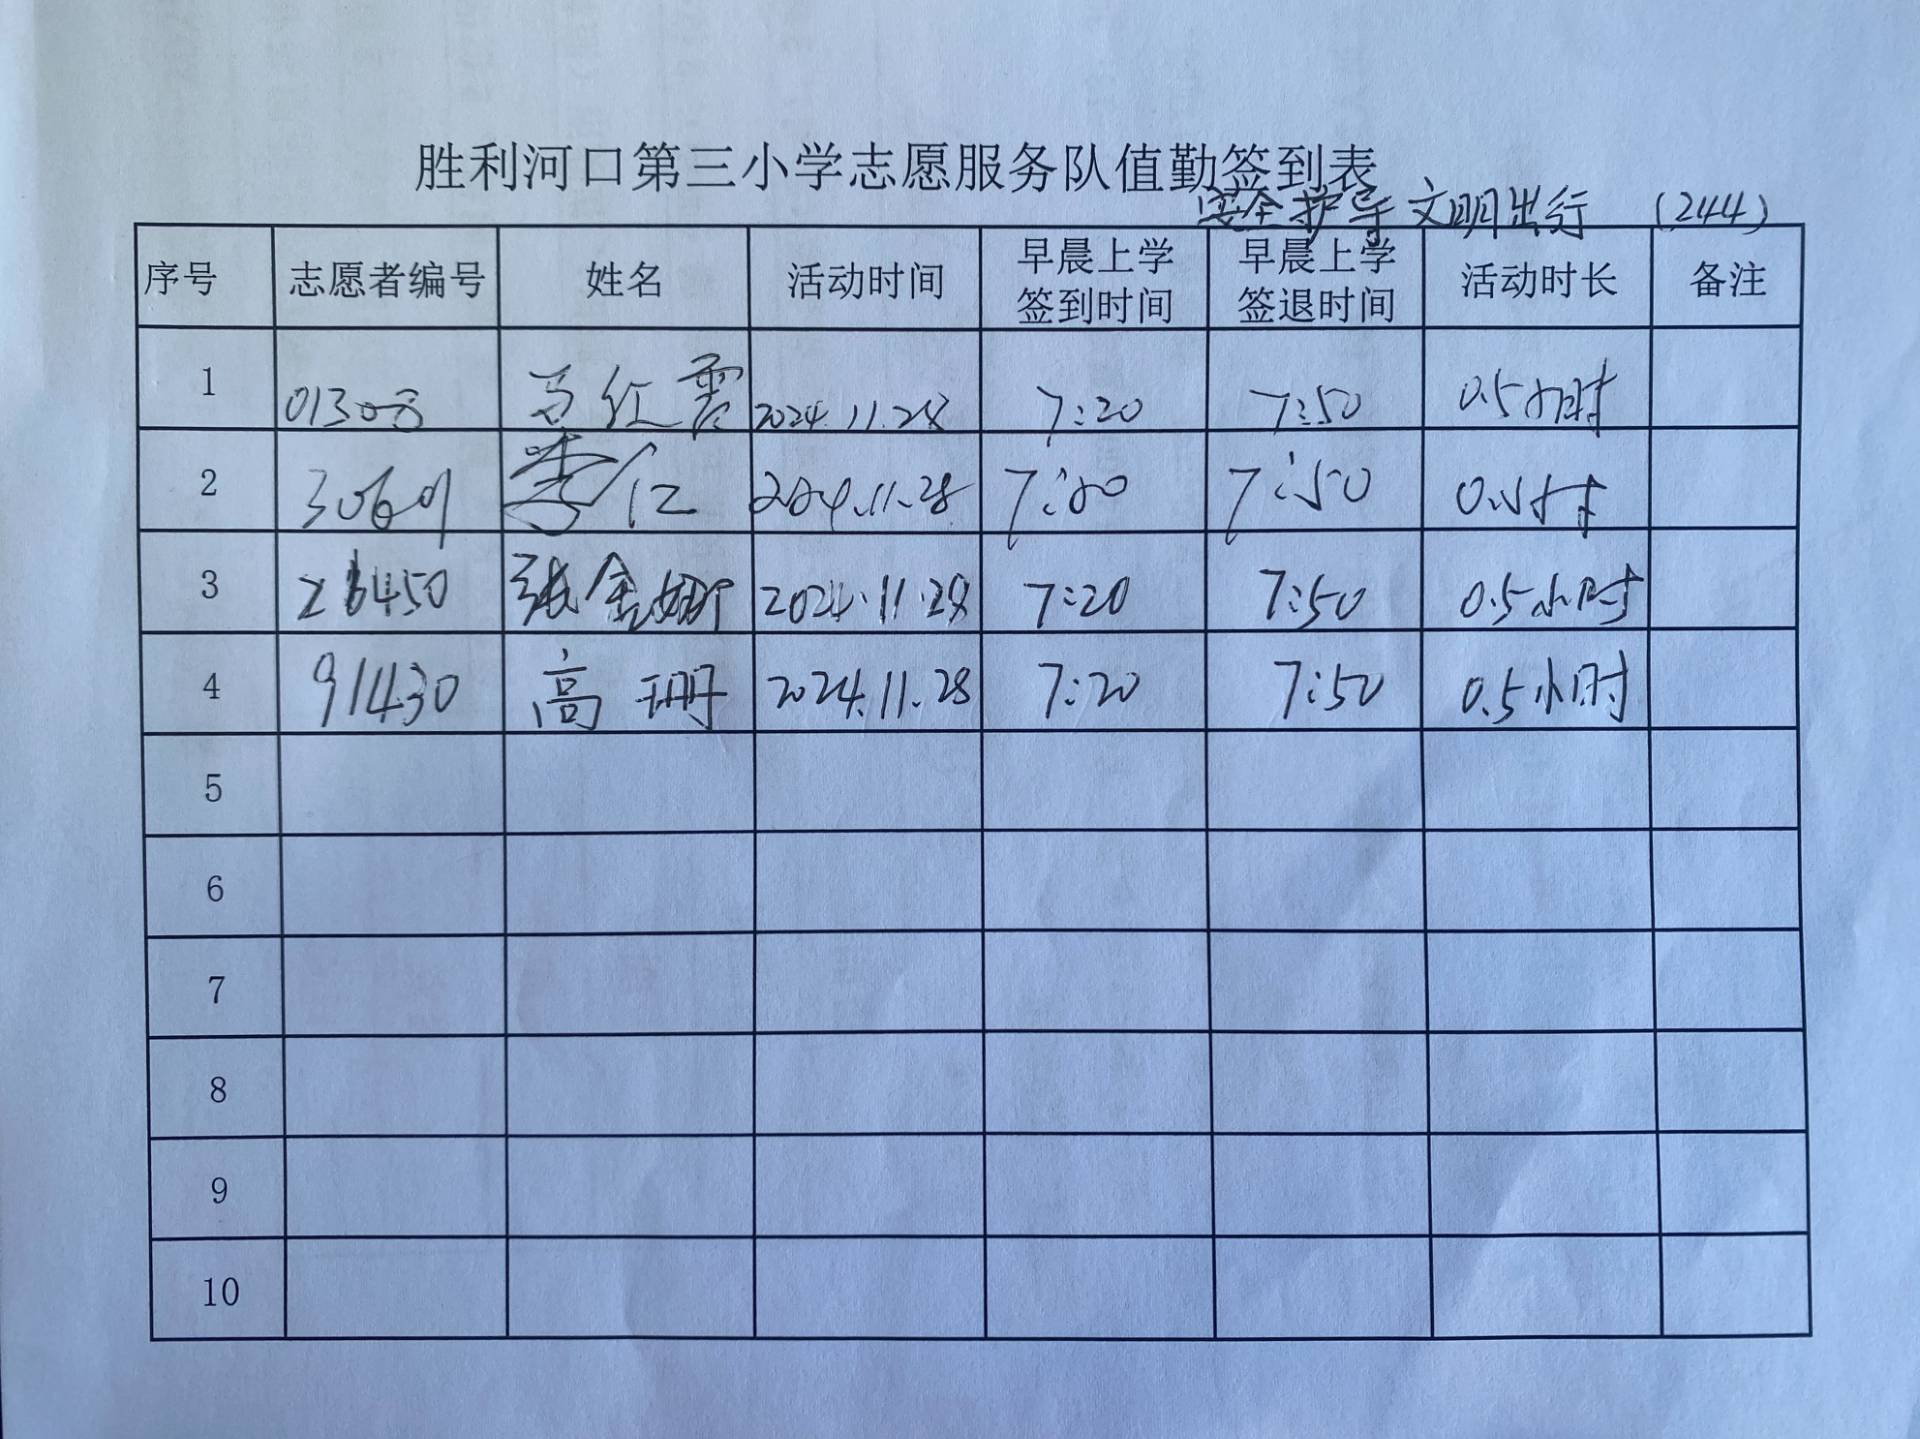 胜利河口第三小学志愿服务队值勤签到表
安全护导 文明出行 (244)
序号 志愿者编号 姓名 活动时间 早晨上学签到时间 早晨上学签退时间 活动时长 备注
1 2024.11.28 7:20 7:50 0.5小时
2 2024.11.28 7:50
3 张金娜 2024.11.28 7:20 7:50 0.5小时
4 91430 高珊 2024.11.28 7:20 7:50 0.5小时
5
6
7
8
9
10